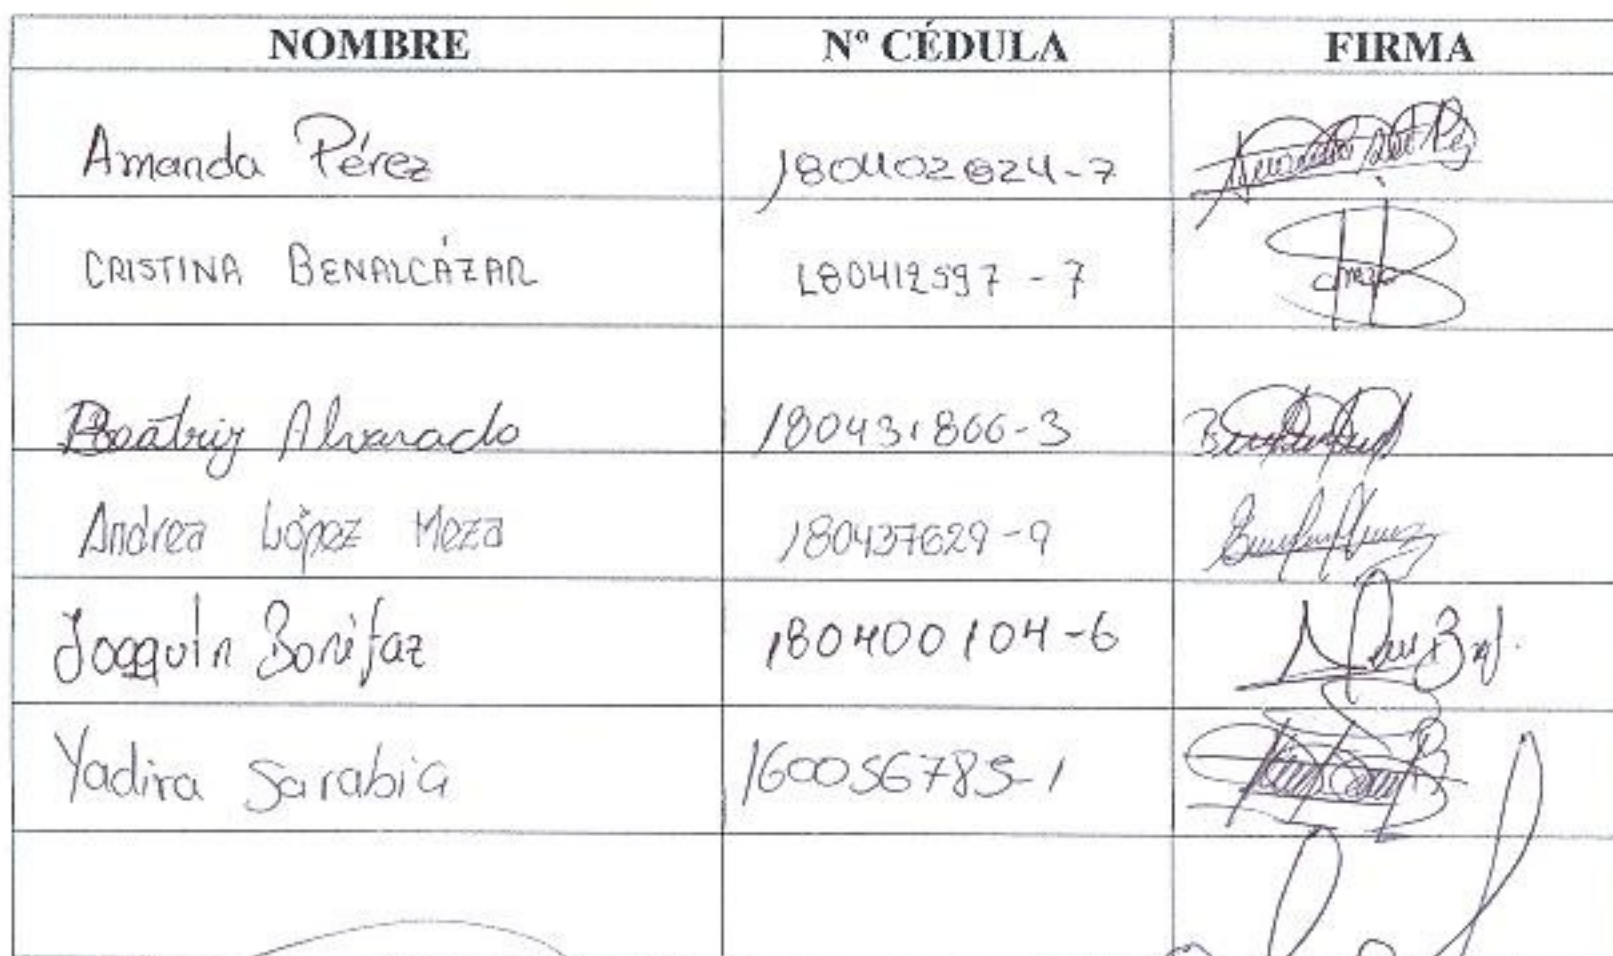 NOMBRE Nº CÉDULA FIRMA
Amanda Pérez 180402624-7
CRISTINA BENALCÁZAR 180412597-7
Beatriz Alvarado 180431866-3
Andrea López Meza 180437629-9
Joaquín Bonifaz 180400104-6
Yadira Sarabia 160056785-1